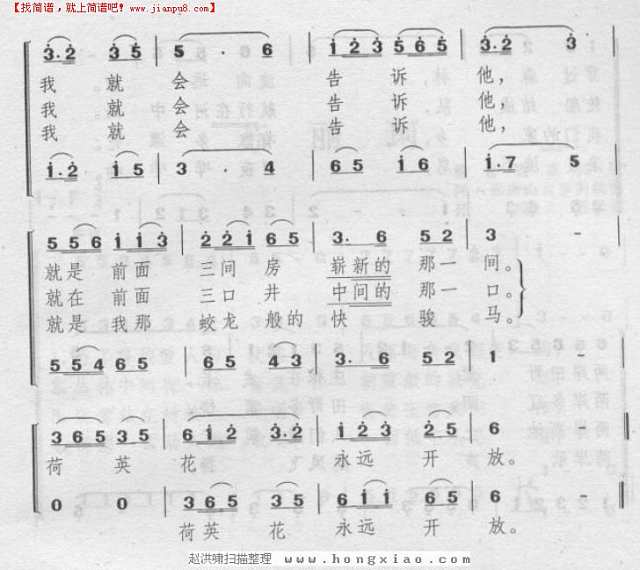 【找简谱，就上简谱吧! www.jianpu8.com】
3·2 3 5 5 · 6 1 2 3 5 6 5 3·2 3
我 就 会 告 诉 他，
我 就 会 告 诉 他，
我 就 会 告 诉 他，
1·2 1 5 3 · 4 6 5 1 6 1·7 5
5 5 6 1 1 3 2 2 1 6 5 3· 6 5 2 3 -
就是 前面 三间 房 崭新的 那一 间。
就在 前面 三口 井 中间的 那一 口。
就是 我那 蛟龙 般的 快 骏 马。
5 5 4 6 5 6 5 4 3 3· 6 5 2 1 -
3 6 5 3 5 6 1 2 3·2 1 2 3 2 5 6 -
荷 英 花 永远 开 放。
0 0 3 6 5 3 5 6 1 1 6 5 6 -
荷英 花 永远 开 放。
赵洪啸扫描整理 www.hongxiao.com